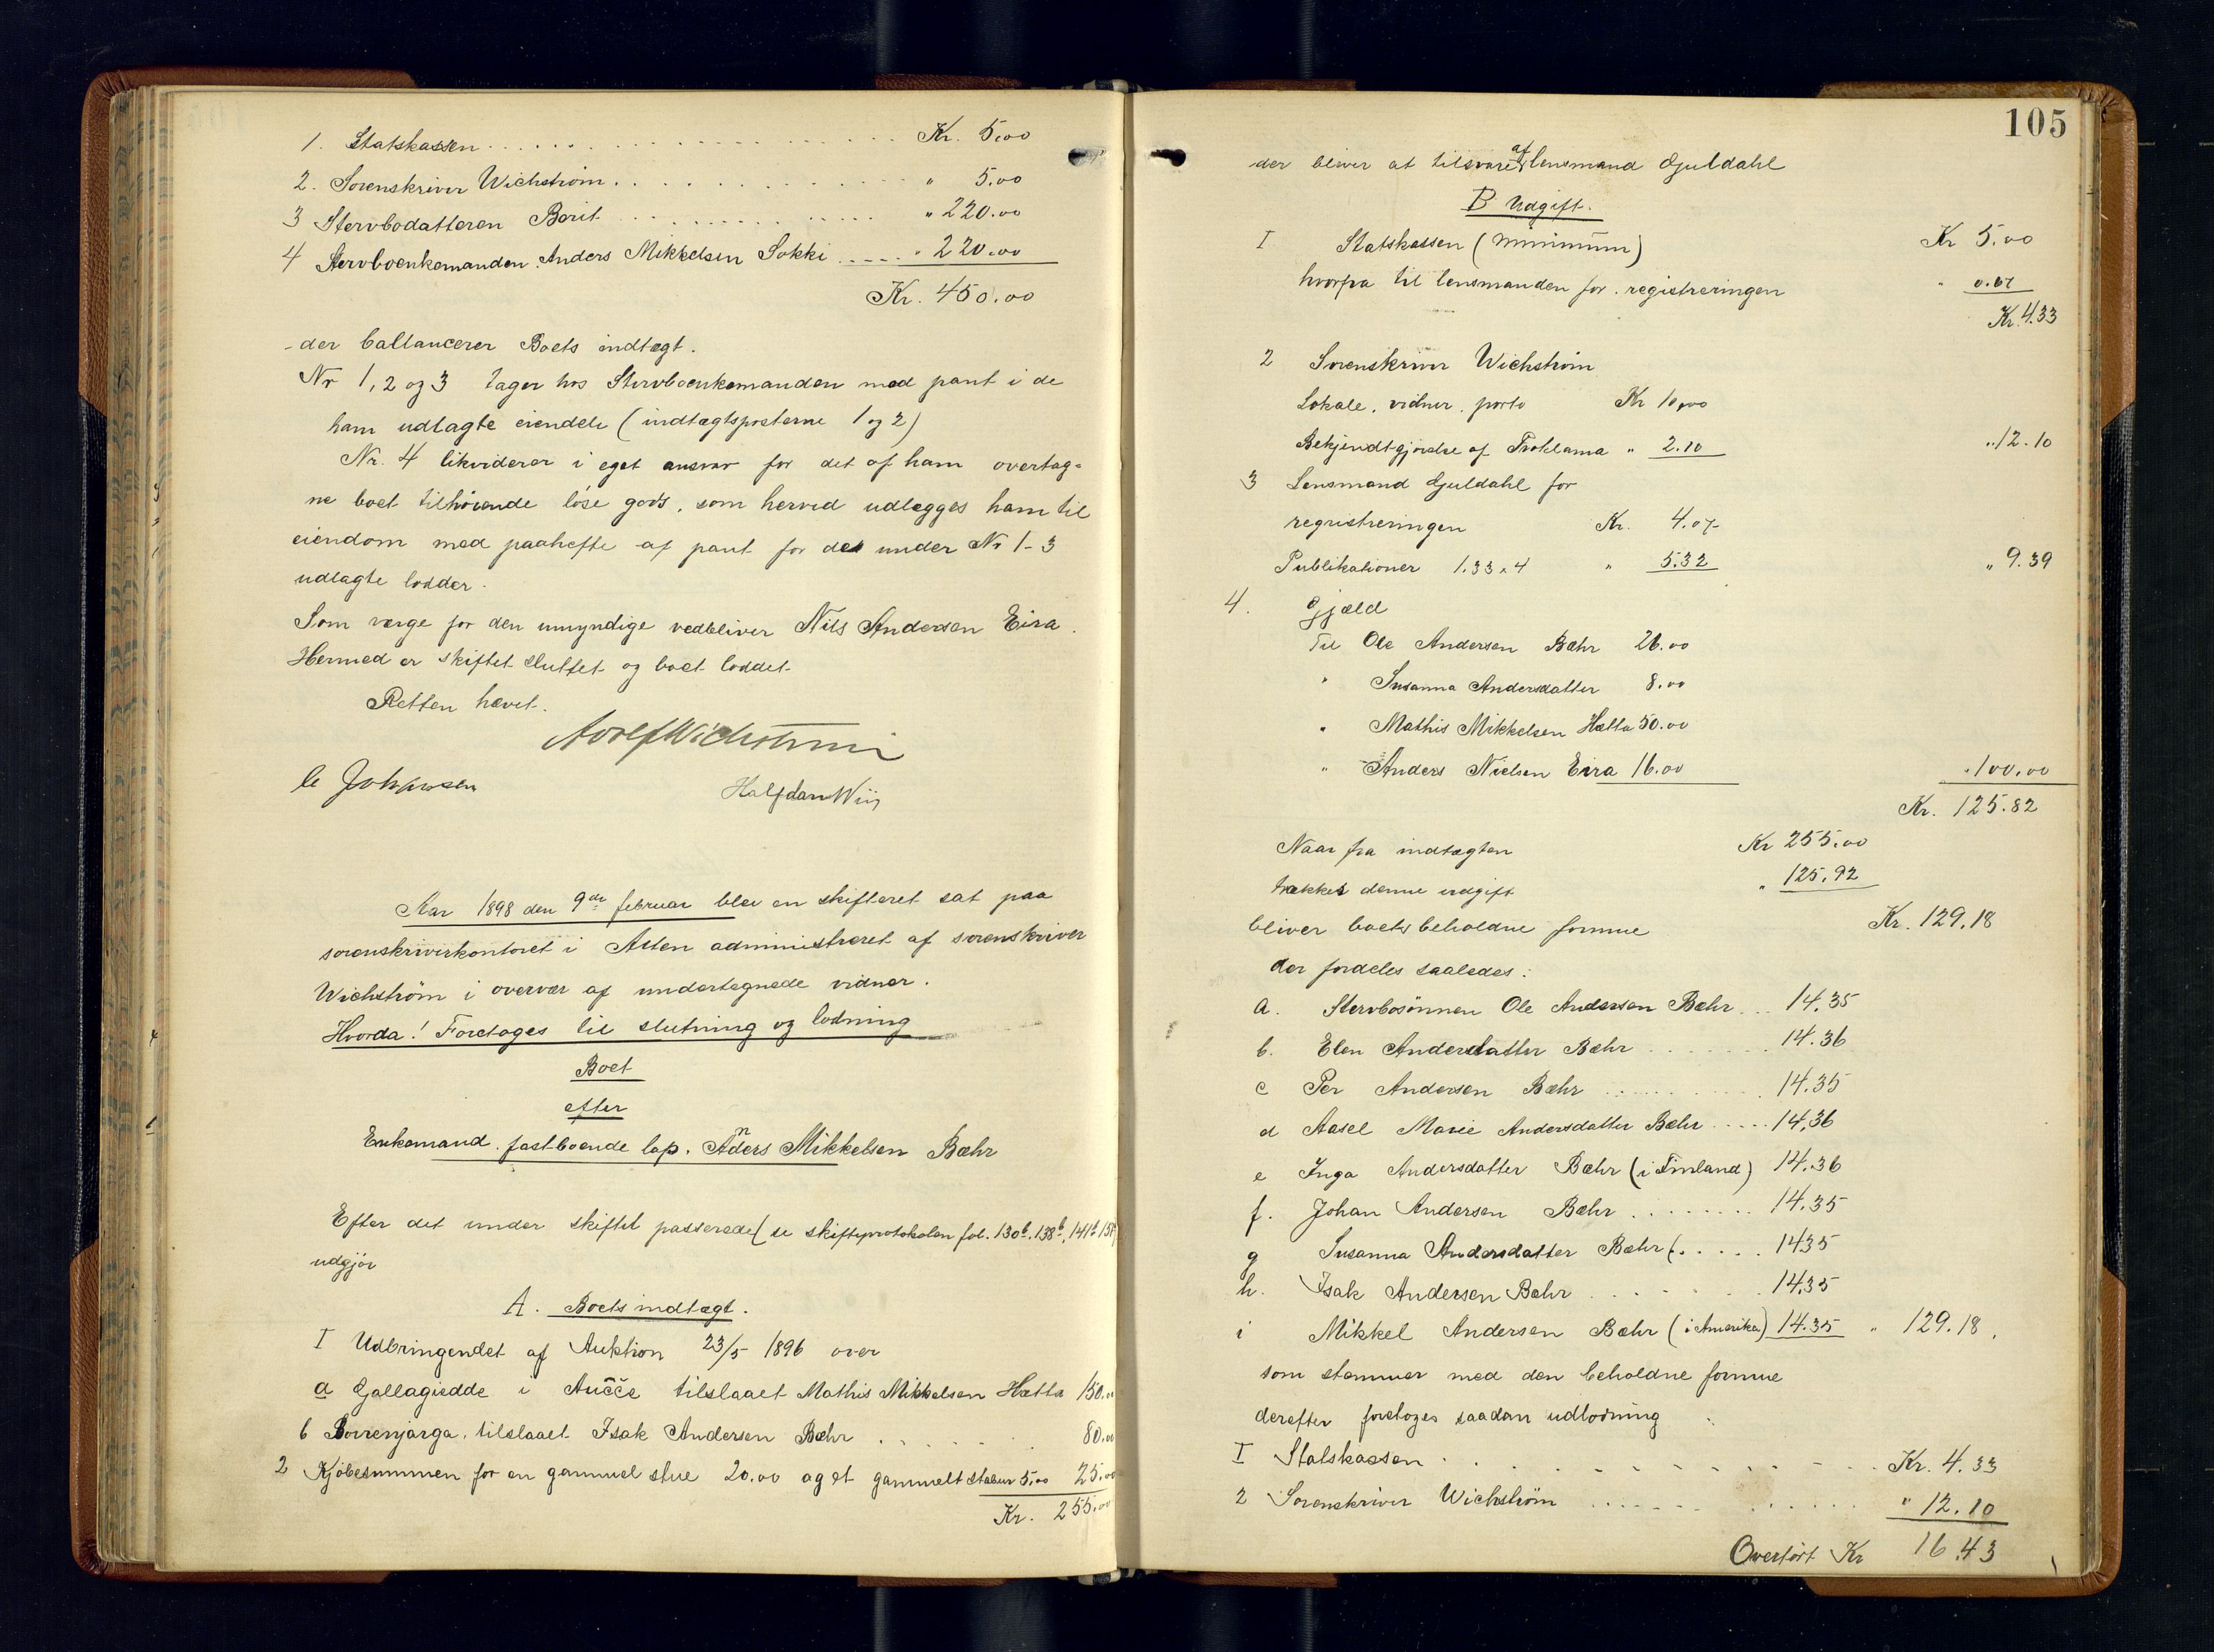 1. Statskassen . . . . . . . . . . Kr. 5.00
2. Sorenskriver Wichstrøm . . . . . . . . " 5.00
3 Stervbodatteren Berit . . . . . . . . " 220.00
4 Stervboenkemanden Anders Mikkelsen Sokki . . . . " 220.00
Kr. 450.00
der ballancerer Boets indtægt.
Nr 1, 2 og 3 tager hos Stervboenkemanden med pant i de
ham udlagte eiendele (indtægtsposterne 1 og 2)
Nr. 4 likviderer i eget ansvar for det af ham overtag-
ne boet tilhörende löse gods, som herved udlægges ham til
eiendom med paahefte af pant for de under Nr 1-3
udlagte lodder.
Som værge for den umyndige vedbliver Nils Andersen Eira.
Hermed er skiftet sluttet og boet loddet.
Retten hævet.
Adolf Wichstrøm
Halfdan Wiig
Aar 1898 den 9de februar blev en skifteret sat paa
sorenskriverkontoret i Alten administreret af sorenskriver
Wichstrøm i overvær af undertegnede vidner.
Hvorda! Foretoges til slutning og lodning
Boet
efter
Enkemand, fastboende lap. Anders Mikkelsen Bæhr
Efter det under skiftet passerede (se skifteprotokolen fol. 130b, 138b, 141b
udgjör
A. Boets indtægt.
I Udbringendet af Auktion 23/5 1896 over
a Gallagiedde i Aučče tilslaaet Mathis Mikkelsen Hætta 150.00
b Borrenjarga, tilslaaet Isak Andersen Bæhr . . . . . 80.00
2 Kjöbesummen for en gammel stue 20.00 og et gammelt stabur 5.00 25.00
Kr. 255.00
105
der bliver at tilsvare af lensmand Guldahl
B Udgift.
I Statskassen (minimum) Kr 5.00
hvorfra til lensmanden for registreringen " 0.67
Kr. 4.33
2 Sorenskriver Wichstrøm
Lokale, vidner, porto Kr 10.00
Bekjendtgjörelse af Proklama " 2.10 " 12.10
3 Lensmand Guldahl for
registreringen Kr. 4.07
Publikationer 1.33 x 4 " 5.32 " 9.39
4. Gjæld
Til Ole Andersen Bæhr 26.00
" Susanna Andersdatter 8.00
" Mathis Mikkelsen Hætta 50.00
" Anders Nielsen Eira 16.00 " 100.00
Kr. 125.82
Naar fra indtægten Kr 255.00
trækkes denne udgift " 125.82
bliver boets beholdne formue Kr. 129.18
der fordeles saaledes:
a. Stervbosönnen Ole Andersen Bæhr . . . 14.35
b. Elen Andersdatter Bæhr . . . . . . 14.36
c Per Andersen Bæhr . . . . . . . 14.35
d Aasel Marie Andersdatter Bæhr . . . . . 14.36
e Inga Andersdatter Bæhr (i Finland) 14.36
f. Johan Andersen Bæhr . . . . . . . . 14.35
g Susanna Andersdatter Bæhr (. . . . . 14.35
h. Isak Andersen Bæhr . . . . . . . 14.35
i Mikkel Andersen Bæhr (i Amerika) 14.35 " 129.18.
som stemmer med den beholdne formue
derefter foretoges saadan udlodning :
I Statskassen . . . . . . . . . Kr. 4.33
2 Sorenskriver Wichstrøm . . . . . . . . " 12.10
Overfört Kr 16.43